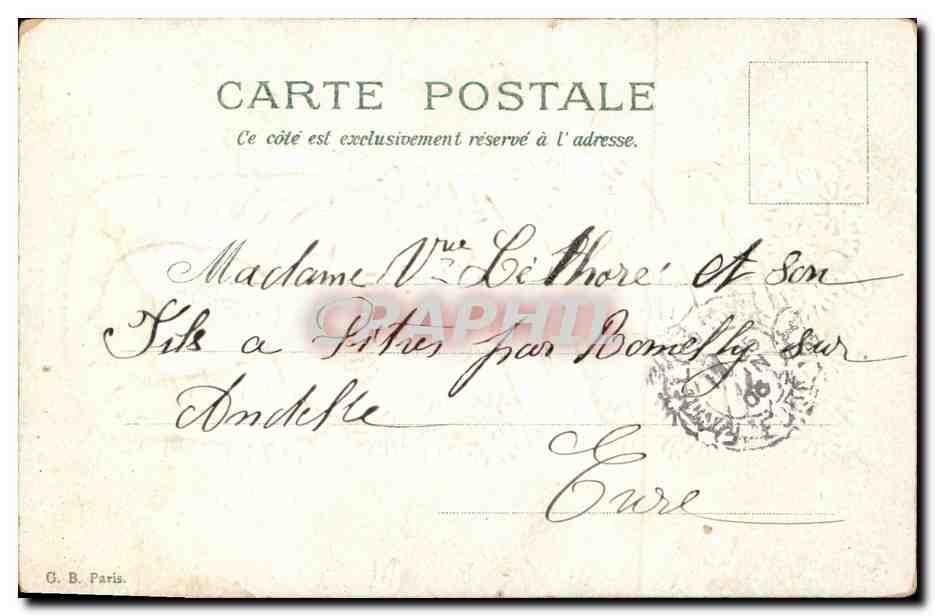 CARTE POSTALE
Ce côté est exclusivement réservé à l'adresse.
Madame Vve Lé Thoré et son
Fils a Pitres par Romelly sur
Andelle
Eure
CPAPHIL
06
G. B. Paris.